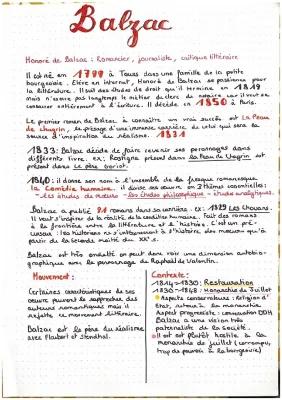 Balzac
Honoré de Balzac : Romancier, journaliste, critique littéraire
Il est né en 1799 à Tours dans une famille de la petite
bourgeoisie. Elève en internat, Honoré de Balzac se passionne pour
la littérature. Il suit des études de droit qu'il termine en 1819
mais n'exerce pas longtemps le métier de clerc de notaire car il veut se
consacrer entièrement à l'écriture. Il décède en 1850 à Paris.
Le premier roman de Balzac à connaître un vrai succès est La Peau
de chagrin, le présage d'une immense carrière de celui qui sera la
source d'inspiration du réalisme. 1831
1833 : Balzac décide de faire revenir ses personnages dans
différents livre. ex : Rastignac présent dans la Peau de Chagrin est
présent dans Le père Goriot.
1840 : il donne son nom à l'ensemble de la fresque romanesque
la Comédie humaine. il divise ses œuvres en 3 thèmes essentielles :
- les études de mœurs - les études philosophique - études analytiques.
Balzac a publié 91 romans dans sa carrière. ex : 1829 Les Chouans.
Il veut s'inspirer de la réalité de la condition humaine. Fait des romans
à la frontière entre la littérature et l'histoire. C'est un pré-
curseur : les historiens ne s'intéressent à l'histoire des mœurs qu'à
partir de la seconde moitié du XXe s.
Balzac est très endetté on peut donc voir une dimension autobio-
graphique avec le personnage de Raphaël de Valentin.
Mouvement :
Certaines caractéristiques de ses
œuvres peuvent le rapprocher des
auteurs romantiques mais il
rejette ce mouvement littéraire.
Balzac est le père du réalisme
avec Flaubert et Stendhal.
Contexte :
1814-1830 : Restauration
1830-1848 : Monarchie de Juillet
Aspects conservateurs : Religion d'
Etat, retour à la monarchie.
Aspect progressiste : conservation DDH
Balzac a une vision très
paternaliste de la société.
Il est est plutôt hostile à la
monarchie de juillet (corrompu,
trop de pouvoir à la bourgeoisie)